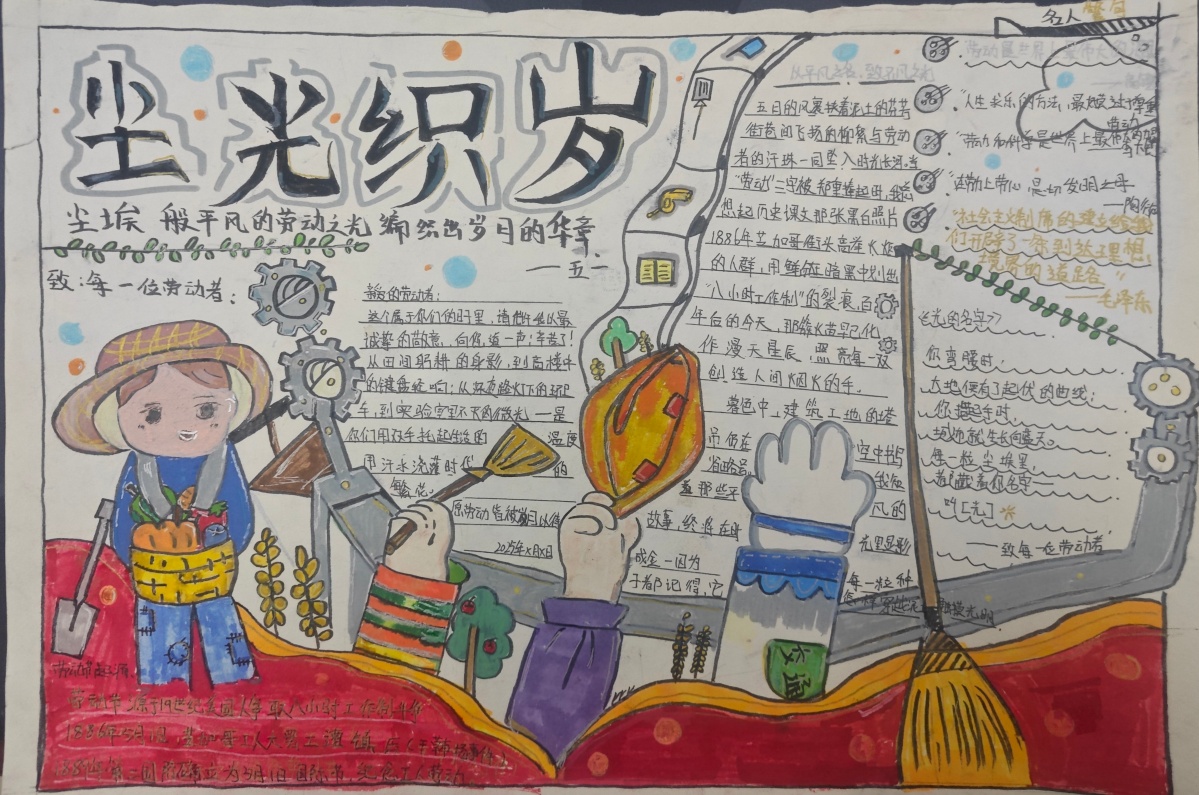 尘光织岁
尘埃般平凡的劳动之光编织出岁月的华章
——五一
致:每一位劳动者:
亲爱的劳动者:
这个属于你们的日子里,请允许他以最
诚挚的敬意,向你道一声:辛苦了!
从田间躬耕的身影,到高楼中
的键盘敲响;从
手,到实验室里不灭的微光——是
你们用双手托起生活的温度
用汗水浇灌时代的
繁花。
愿劳动皆被岁月以待
2025年X月X日
从平凡之处,致不凡之光
五月的风裹挟着泥土的芬芳
街巷间飞扬的柳絮与劳动
者的汗珠一同坠入时光长河。当
“劳动”二字被郑重捧起时,我总
想起历史课文那张黑白照片
1886年芝加哥街头高举火炬
的人群,用鲜血在暗黑中划出
“八小时工作制”的裂痕,百
年后的今天,那簇火苗早已化
作漫天星辰,照亮每一双
创造人间烟火的手。
暮色中,建筑工地的塔
吊仍在空中书写
省略号。我饭
着那些平凡的
故事,终将在时光里显影
成金——因为每一粒种
子都记得,它
名人警句
劳动是世界上最伟大的
“人生求乐的方法,最好莫过于尊重
劳动
“劳力和科学是世界上最伟大的
“在劳力上劳心,是一切发明之母
——陶行知
“社会主义制度的建立给我
们开辟了一条到达理想
境界的道路”
——毛泽东
《光的名字》
你弯腰时,
大地便有了起伏的曲线;
你举起手时,
城市就生长向蓝天。
每一粒尘埃里,
都藏着你名字——
叫[光]
——致每一位劳动者
交通
劳动节起源
劳动节源于19世纪美国人争取八小时工作制斗争
1886年5月1日,芝加哥工人大罢工遭镇压(干草市场事件)
1889年第二国际确立为5月1日国际节,